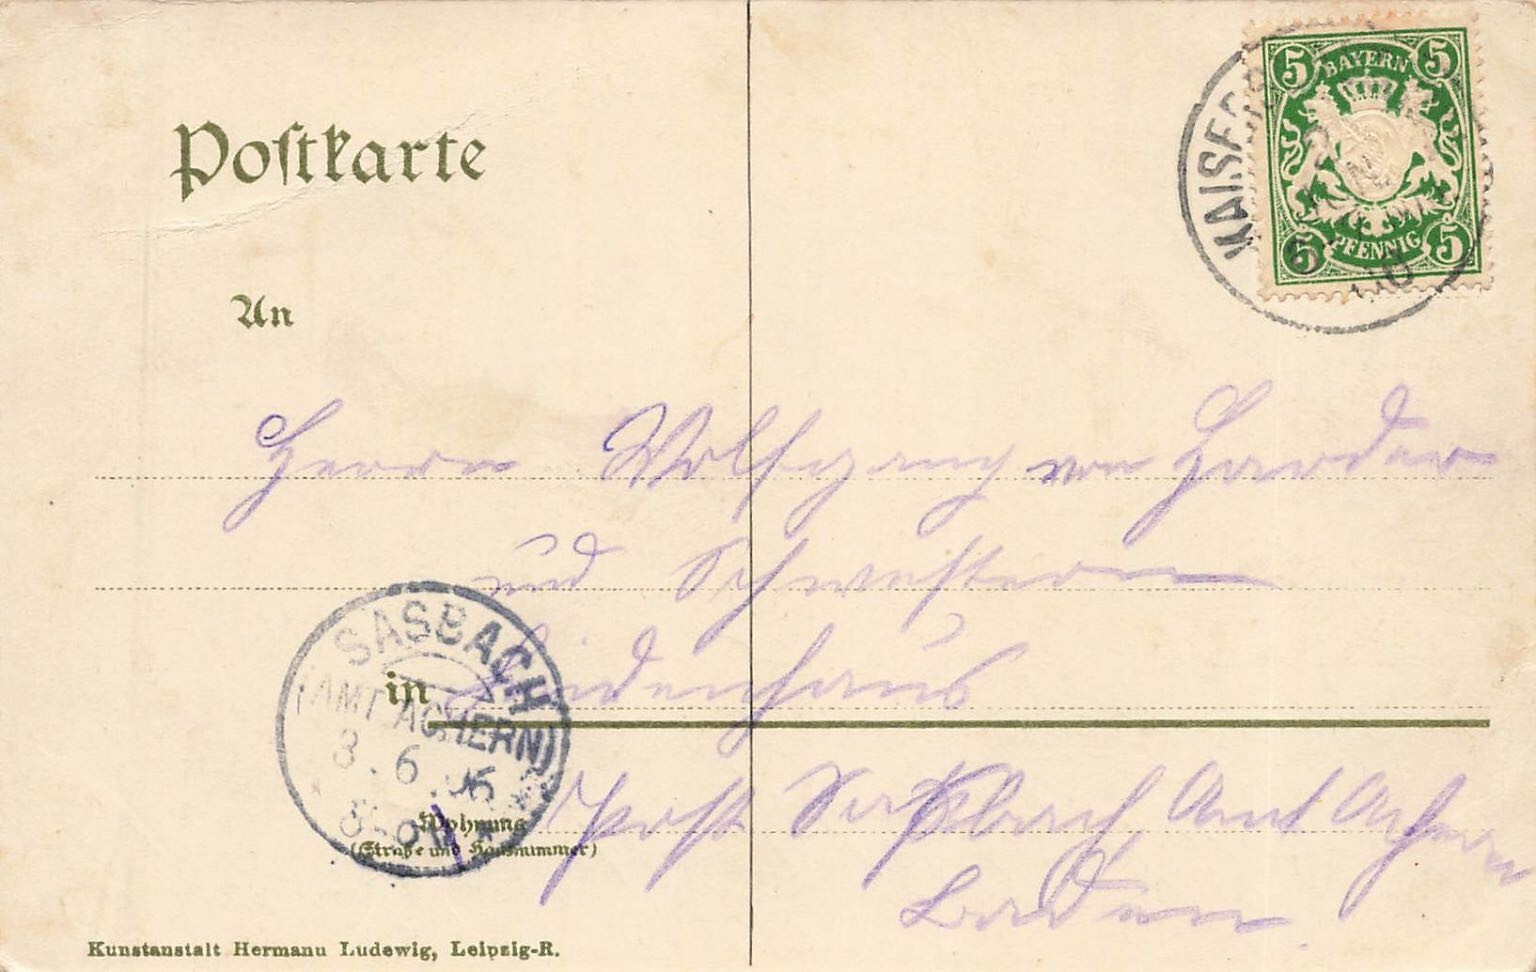 Postkarte
5 BAYERN 5
5 PFENNIG 5
KAISE
An
Herrn Wolfgang von Harder
und Schwestern
SASBACH
(AMT ACHERN)
in
3.6.06
8-9
Wohnung
(Straße und Hausnummer)
Post Sasbach, Amt Achern
Baden.
Kunstanstalt Hermann Ludewig, Leipzig-R.